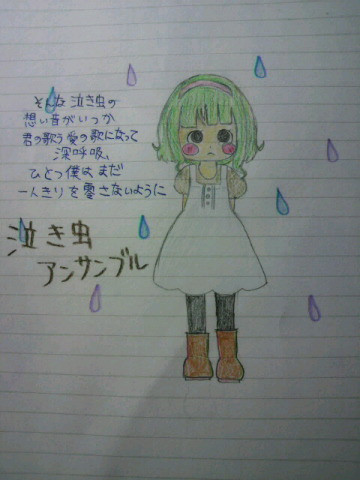 そんな泣き虫の
想い音がいつか
君の歌う愛の歌になって
深呼吸、
ひとつ僕は、まだ
一人きりを零さないように
泣き虫
アンサンブル